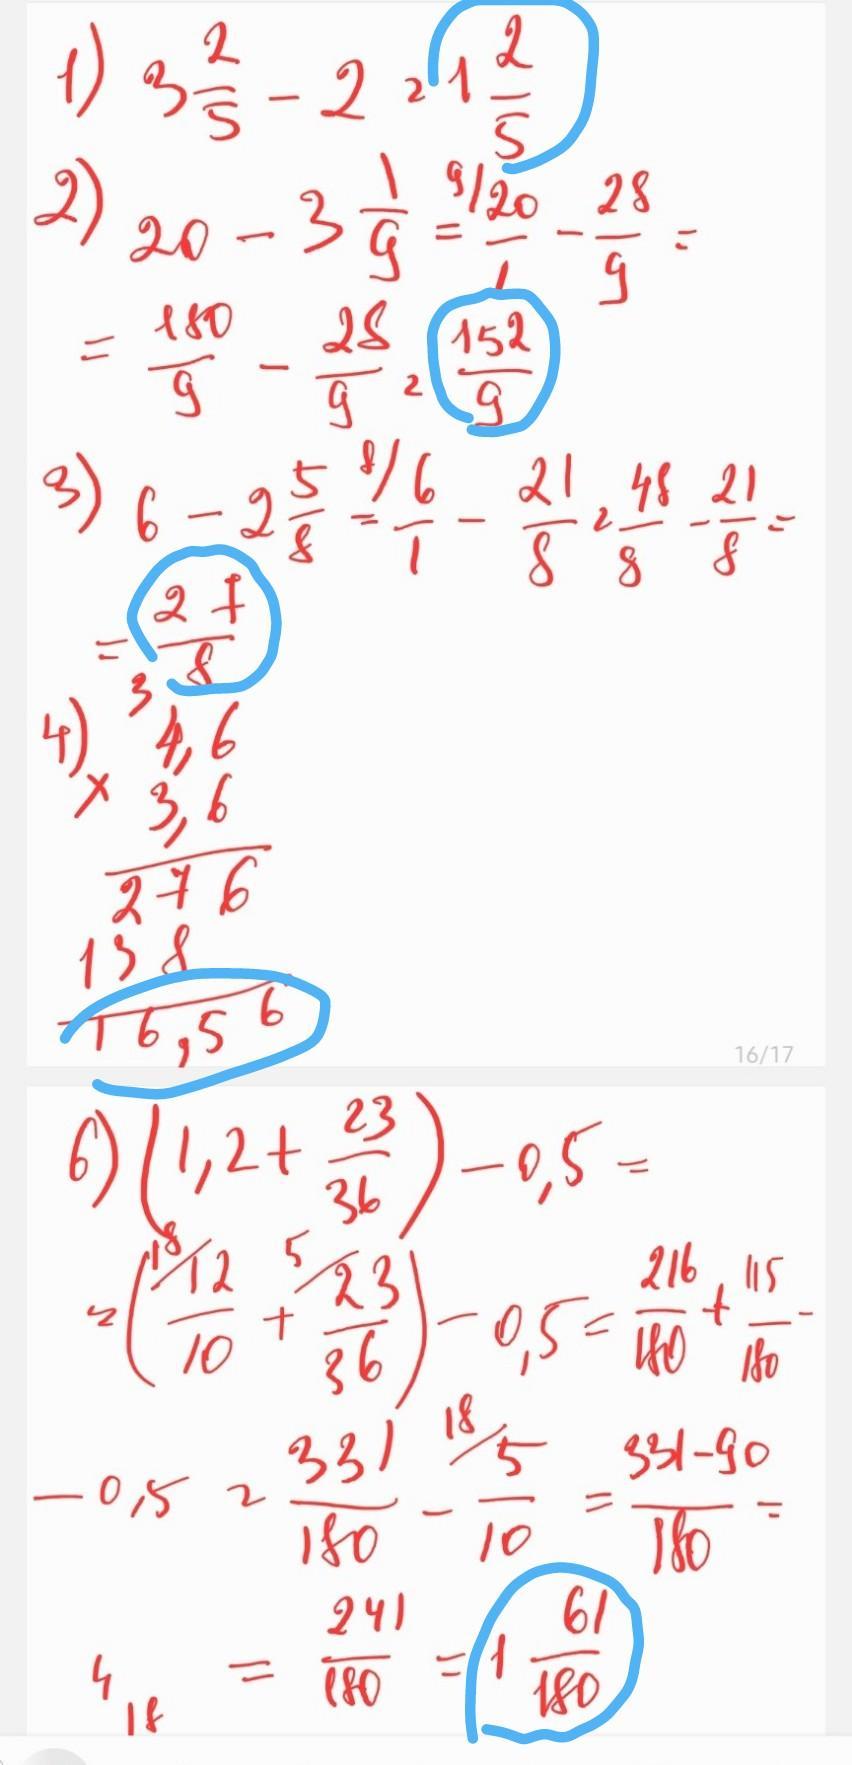 1) 3 2/5 - 2 = 1 2/5
2) 20 - 3 1/9 = 9/ 20/1 - 28/9 =
= 180/9 - 28/9 = 152/9
3) 6 - 2 5/8 = 8/ 6/1 - 21/8 = 48/8 - 21/8 =
= 27/8
3
4) 4,6
× 3,6
276
138
16,56
16/17
6) (1,2 + 23/36) - 0,5 =
= (18/ 12/10 + 5/ 23/36) - 0,5 = 216/180 + 115/180 -
- 0,5 = 331/180 - 18/ 5/10 = 331-90/180 =
= 241/180 = 1 61/180
4 18